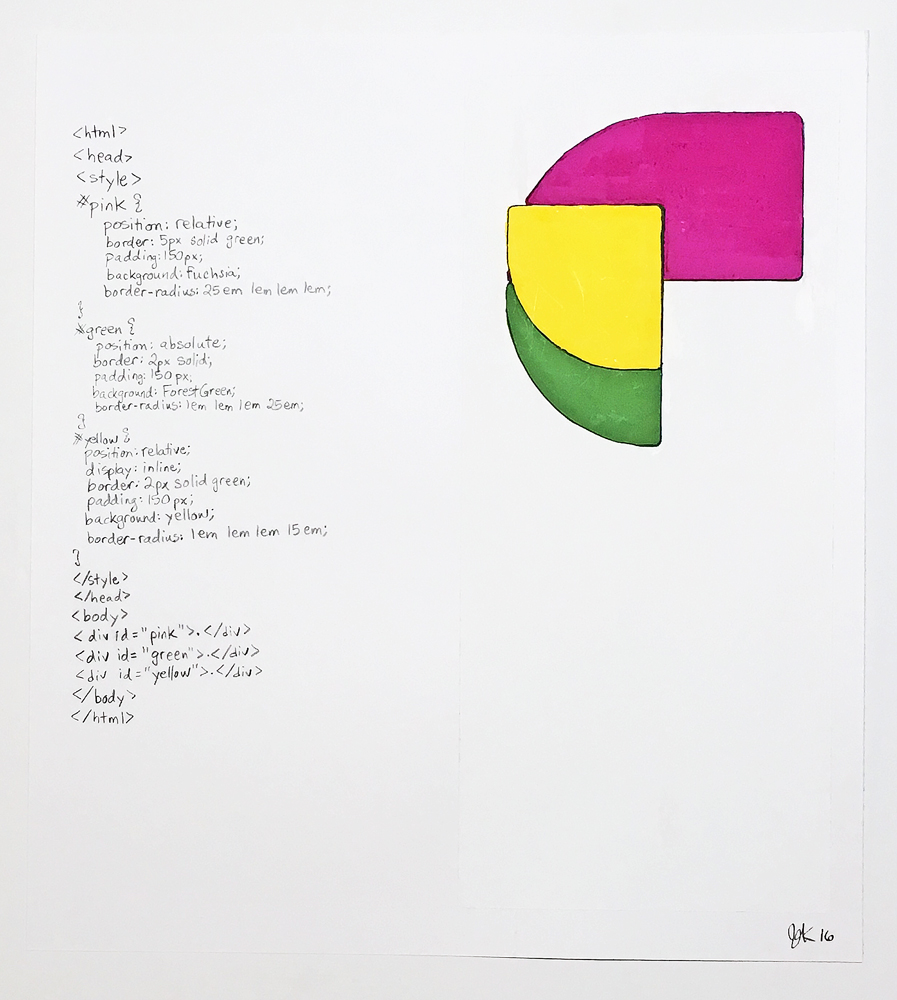 <html>
<head>
<style>
#pink {
position: relative;
border: 5px solid green;
padding: 150px;
background: fuchsia;
border-radius: 25em 1em 1em 1em;
}
#green {
position: absolute;
border: 2px solid;
padding: 150px;
background: ForestGreen;
border-radius: 1em 1em 1em 25em;
}
#yellow {
position: relative;
display: inline;
border: 2px solid green;
padding: 150px;
background: yellow;
border-radius: 1em 1em 1em 15em;
}
</style>
</head>
<body>
<div id="pink">.</div>
<div id="green">.</div>
<div id="yellow">.</div>
</body>
</html>
16